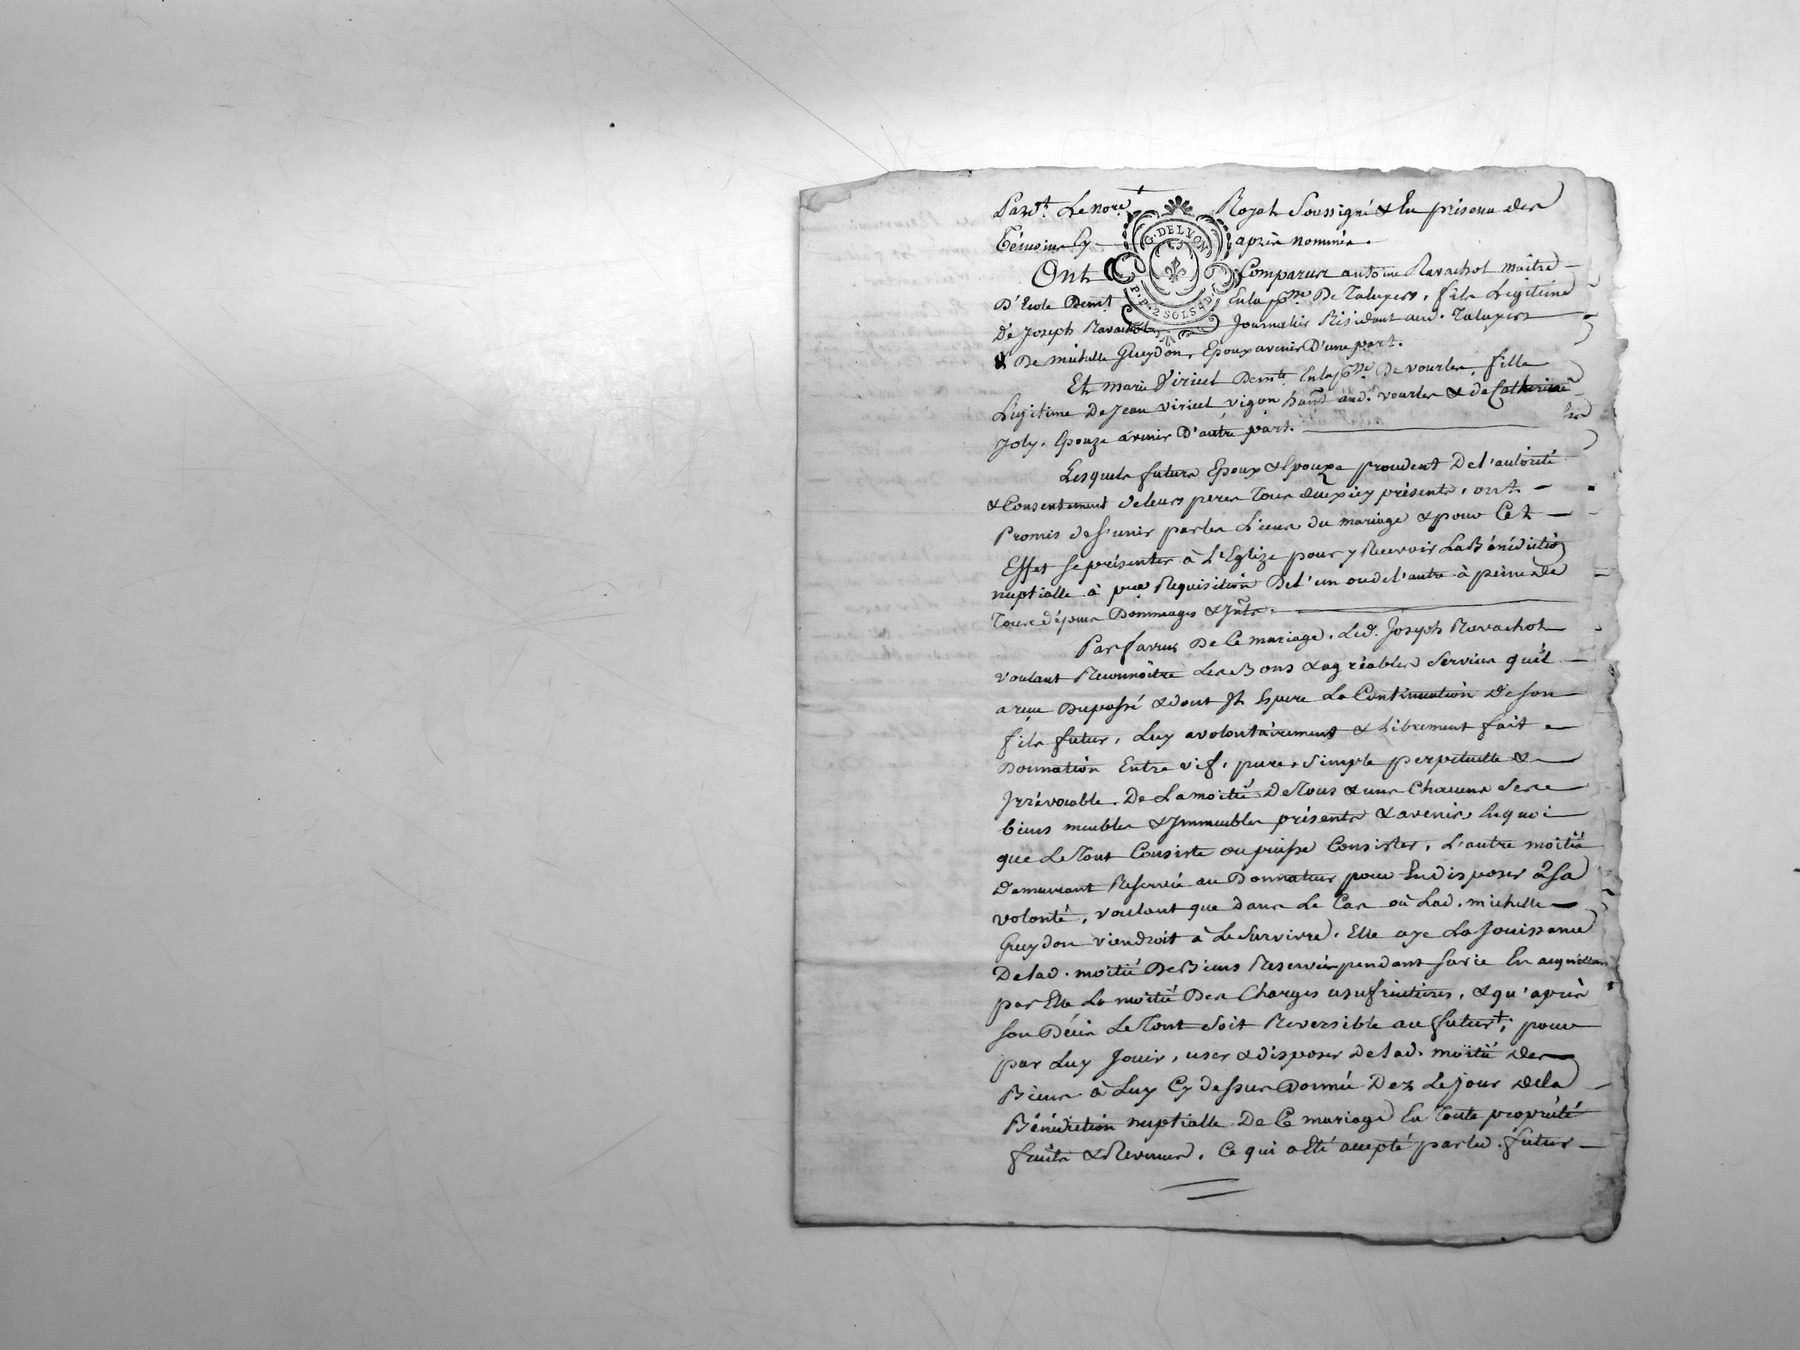 Pardt. Le nore. Royal Soussigné & En présence des
Témoins Cy après nommés.
G. DE LYON
P.P. 2 SOLS 4 D.
Ont Comparus antoine Ravachot maître
D'Ecole Demt. En la psse. De Taluyers, fils Legitime
De Joseph Ravachot Journalier Résidant aud. Taluyers
& De michelle Gueydon, Epoux avenir D'une part.
Et marie Viricel Demte. En la psse. De vourles, fille
Legitime De Jean viricel vigon habt. aud. vourles & de Catherine
Joly, Epouze avenir D'autre part.
Lesquels futurs Epoux & Epouze procedent De l'autorité
& Consentement de leurs peres Tous deux icy présents, ont
Promis de s'unir par les Liens du mariage & pour Cet
Effet se présenter à L'Eglize pour y Recevoir La Bénédiction
nuptialle à pre. Requisition De l'un ou de l'autre à peine de
Tous dépens Dommages & Jnts.
Par faveur De Ce mariage, Led. Joseph Ravachot
voulant Reconnoitre Les Bons & agréables Services qu'il
a reçu Du passé & dont Jl Espere La Continuation de son
fils futur, Luy a volontairement & Librement fait
Donnation Entre vif, pure, Simple perpetuelle &
Jrrévocable. De La moitié De Tous & uns Chacuns Ses
biens meubles & Jmmeubles présents & avenir, En quoi
que Le Tout Consiste ou puisse Consister, L'autre moitié
Demeurant Reservée au Donnateur pour En disposer à Sa
volonté, voulant que dans Le Cas où Lad. michelle
Gueydon viendroit à Le Survivre, Elle aye La Jouissance
De lad. moitié De Biens Reservés pendant sa vie En acquittant
par Elle La moitié Des Charges usufruitieres, & qu'après
son Décès Le Tout Soit Reversible au futur, pour
par Luy Jouir, user & disposer De lad. moitié des
Biens à Luy Cy dessus Donnée Dez Le jour de la
Bénédiction nuptialle De Ce mariage En Toute propriété
fruits & Revenus, Ce qui a Eté accepté par led. futur